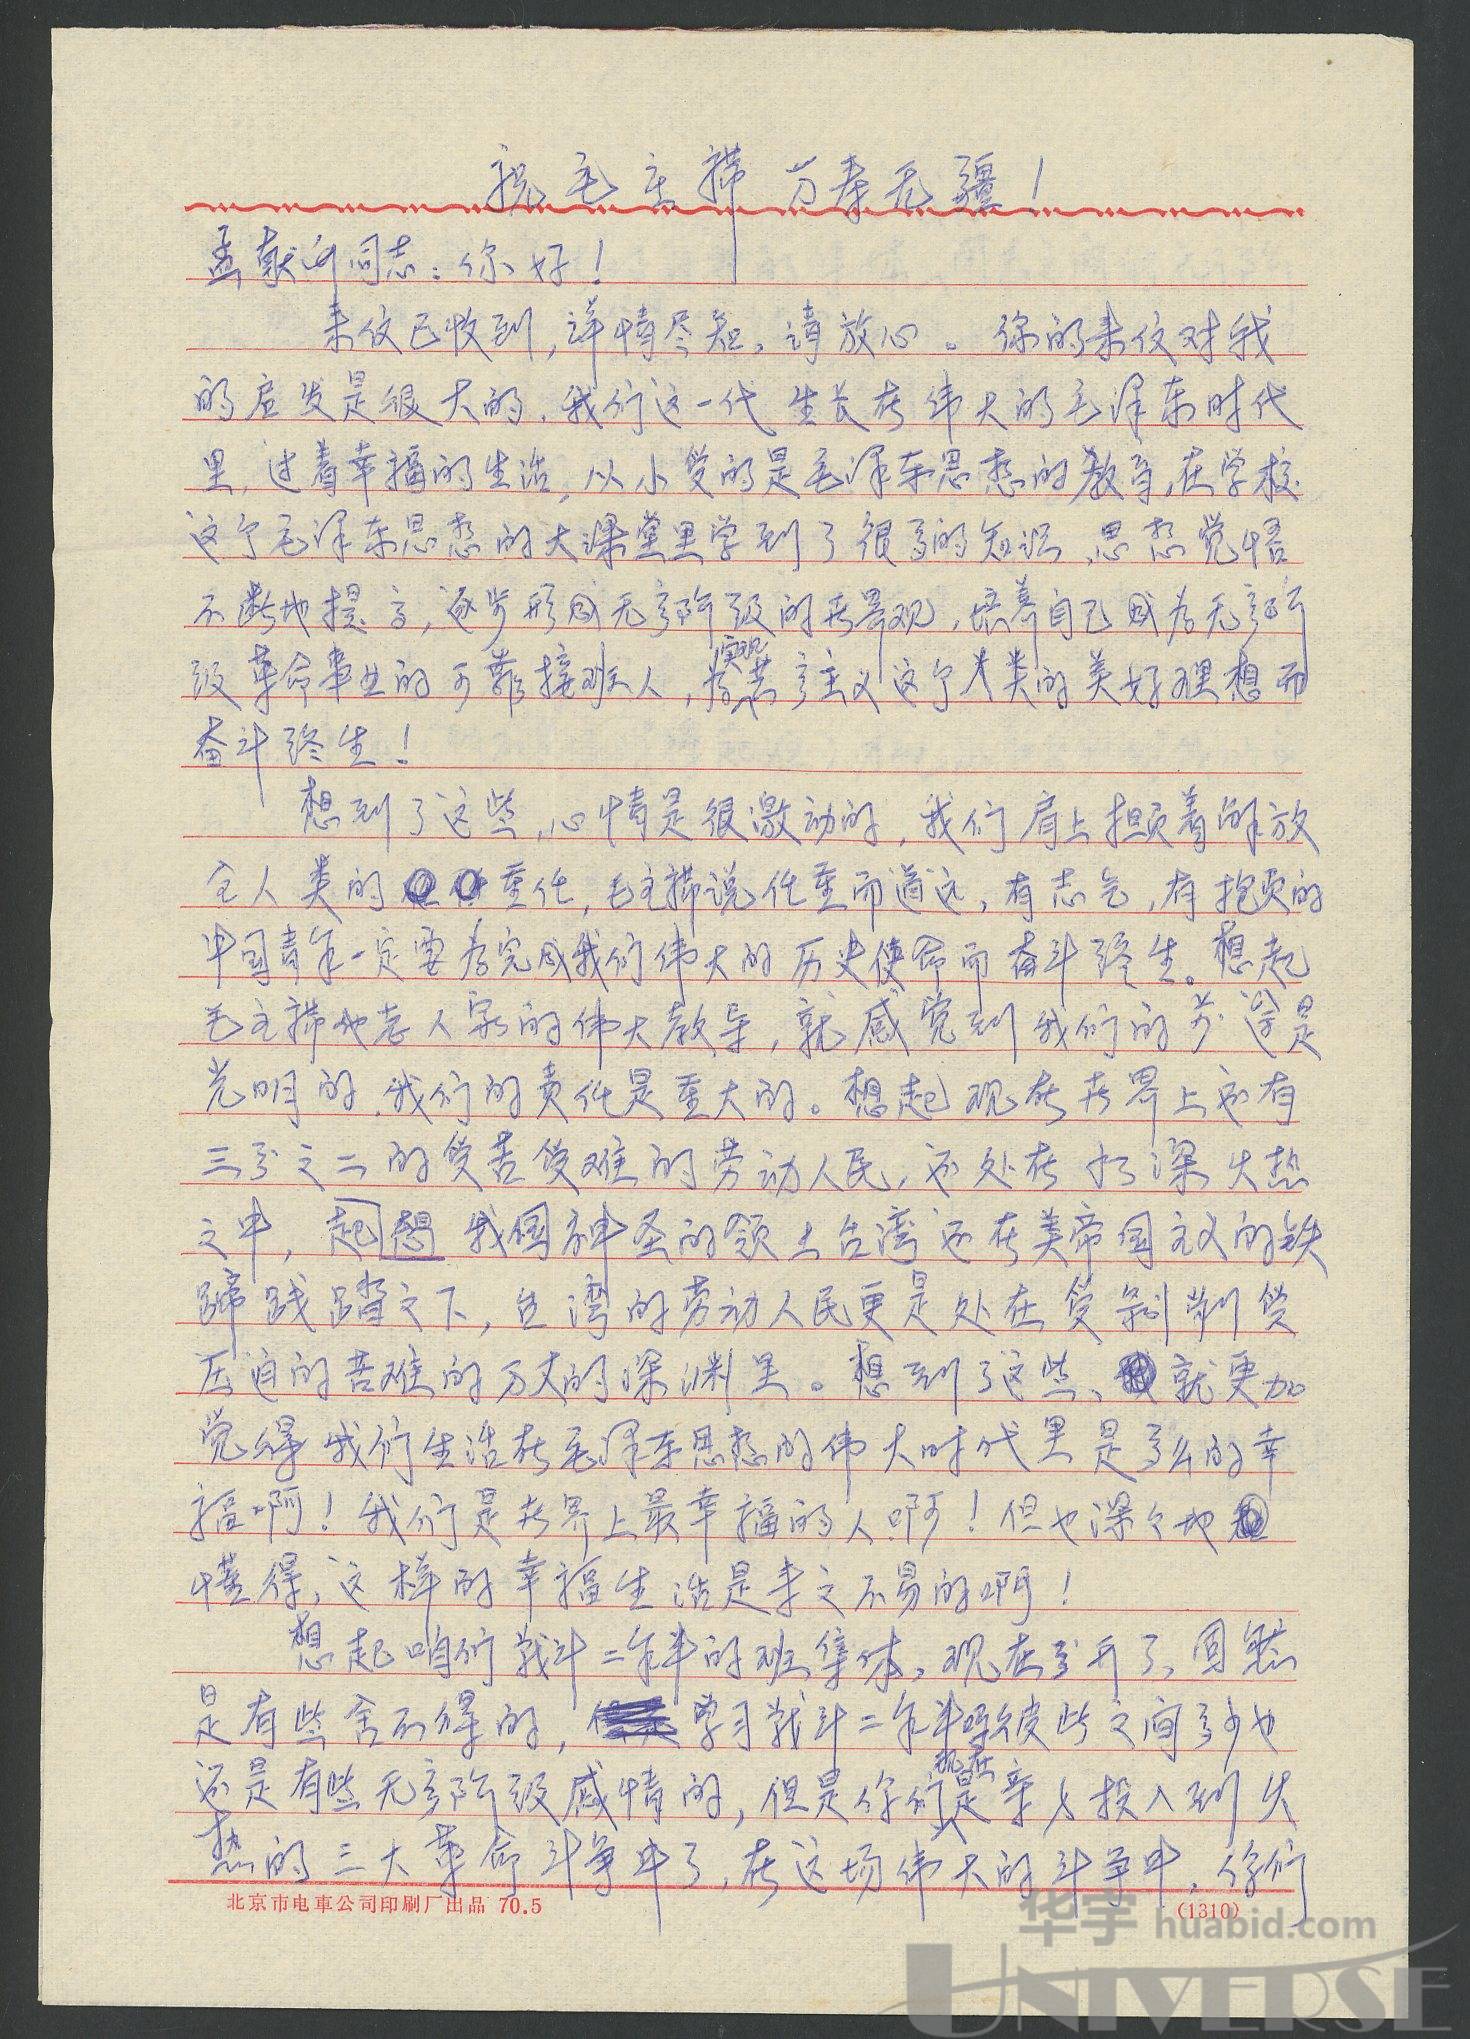 祝毛主席万寿无疆！
孟献 同志：你好！
来仪已收到，详情尽知，请放心。你的来仪对我
的启发是很大的，我们这一代生长在伟大的毛泽东时代
里，过着幸福的生活，从小受的是毛泽东思想的教育，在学校
这个毛泽东思想的大课堂里学到了很多的知识，思想觉悟
不断地提高，逐步形成无产阶级的世界观，培养自己成为无产阶
级革命事业的可靠接班人，为实现共产主义这个人类的美好理想而
奋斗终生！
想到了这些，心情是很激动的，我们肩上担负着解放
全人类的重任，毛主席说任重而道远，有志气，有抱负的
中国青年一定要为完成我们伟大的历史使命而奋斗终生。想起
毛主席他老人家的伟大教导，就感觉到我们的前途是
光明的，我们的责任是重大的。想起现在世界上还有
三分之二的受苦受难的劳动人民，还处在水深火热
之中，起想我国神圣的领土台湾还在美帝国主义的铁
蹄践踏之下，台湾的劳动人民更是处在受剥削受
压迫的苦难的万丈的深渊里。想到了这些、就更加
觉得我们生活在毛泽东思想的伟大时代里是多么的幸
福啊！我们是世界上最幸福的人啊！但也深々地
懂得，这样的幸福生活是来之不易的啊！
想起咱们战斗二年半的班集体，现在分开了，固然
是有些舍不得的，学习战斗二年半吗彼此之间多少也
还是有些无产阶级感情的，但是你们现在是亲身投入到火
热的三大革命斗争中了，在这场伟大的斗争中，你们
北京市电車公司印刷厂出品 70.5 (1310)
华宇 huabid.com
UNIVERSE